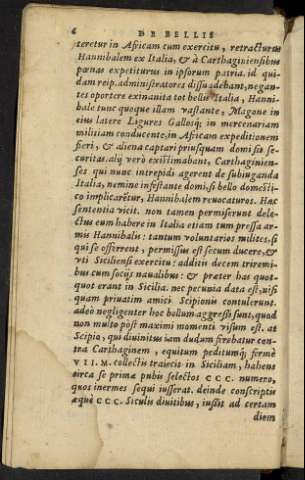 6 DE BELLIS
teretur in Africam cum exercitu, retracturus
Hannibalem ex Italia, & à Carthaginiensibus
pœnas expetiturus in ipsorum patria. id qui-
dam reip. administratores dissuadebant, negan-
tes oportere exinanita tot bellis Italia, Hanni-
bale tunc quoque illam vastante, Magone in
eius latere Ligures Gallosq; in mercenariam
militiam conducente, in Africam expeditionem
fieri, & aliena captari priusquam domi sit se-
curitas. alij verò existimabant, Carthaginien-
ses qui nunc intrepidi agerent de subiuganda
Italia, nemine infestante domi, si bello domesti-
co implicarẽtur, Hannibalem reuocaturos. Hæc
sententia vicit. non tamen permiserunt dele-
ctus eum habere in Italia etiam tum pressa ar-
mis Hannibalis: tantum voluntarios milites, si
qui se offerrent, permissus est secum ducere, &
vti Siciliensi exercitu: additis decem triremi-
bus cum socijs naualibus: & præter has quot-
quot erant in Sicilia. nec pecunia data est, nisi
quam priuatim amici Scipionis contulerunt.
adeò negligenter hoc bellum aggressi sunt, quod
non multò pòst maximi momenti visum est. at
Scipio, qui diuinitus iam dudum ferebatur con-
tra Carthaginem, equitum peditumq; fermè
VII. M. collectis traiecit in Siciliam, habens
circa se primæ pubis selectos CCC. numero,
quos inermes sequi iusserat. deinde conscriptis
æquè CCC. Siculis diuitibus, iussit ad certam
diem